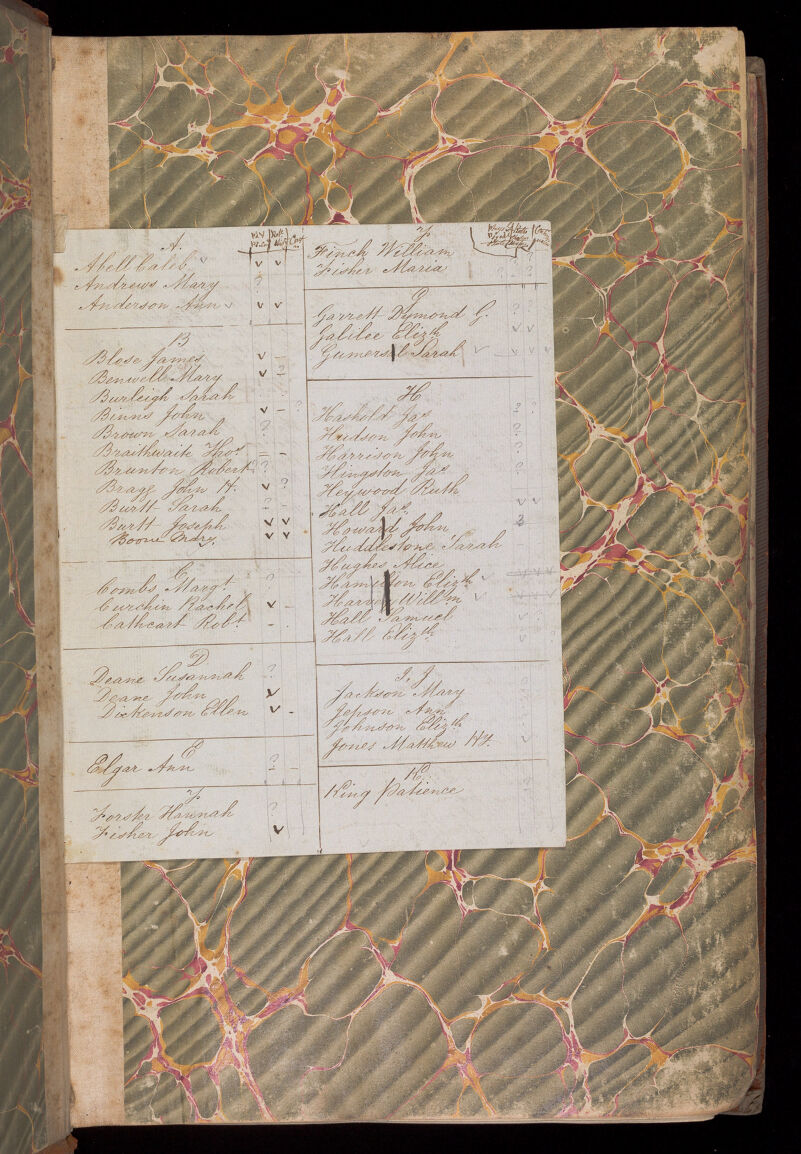 A.
Abell Caleb v v v
Andrews Mary ?
Anderson Ann v v v
B
Blose James v -
Benwell Mary v -
Burleigh Sarah
Binns John v - ?
Brown Sarah ?
Braithwaite Thos - -
Brunton Robert ?
Bragg John H. v ?
Burtt Sarah ? -
Burtt Joseph v v
Boone Mary v v
C
Combs Margt ?
Curchin Rachel v -
Cathcart Robt - -
D
Deane Susannah ?
Deane John v
Dickenson Ellen v -
E
Elgar Ann ? -
F
Forster Hannah ?
Fisher John v
F
Finch William
Fisher Maria ? ?
G
Garrett Dymond G. ? ?
Galilee Elizth v v
Gumersal Sarah v - v v v
H
Hashold Jas ? ?
Hudson John ?
Harrison John ?
Hingston Jas ?
Heywood Ruth
Hall Jas v v
Howard John ?
Huddlestone Sarah
Hughes Alice
Hamilton Elizth v
Harris Willm v
Hall Samuel
Hall Elizth
I, J
Jackson Mary
Jepson Ann
Johnson Elizth
Jones Matthew
K
King Patience